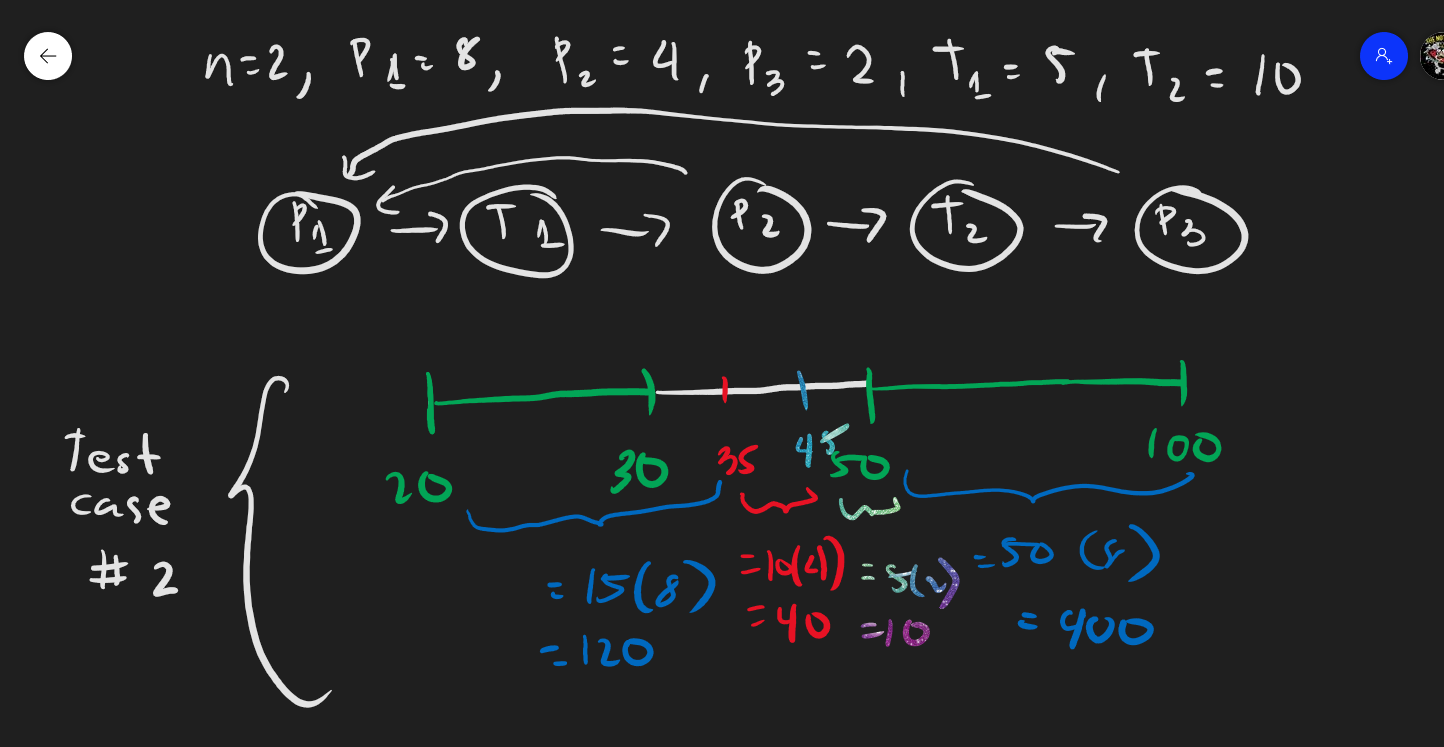 n=2, P1=8, P2=4, P3=2, T1=5, T2=10
P1 → T1 → P2 → T2 → P3
Test
case
# 2
20 30 35 45 50 100
=15(8)
=120
=10(4)
=40
=5(2)
=10
=50 (8)
=400